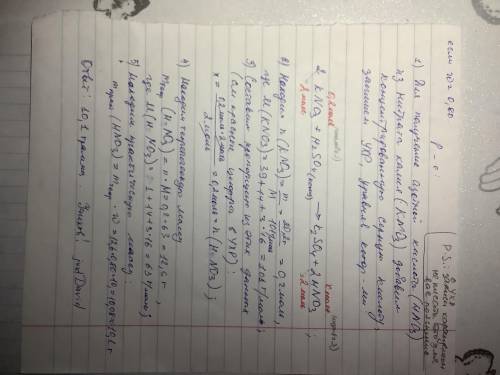 если w = 0,80
Р - е:
P.S.:
1) Для получения азотной кислоты (HNO₃)
из нитрата калия (KNO₃) добавим
концентрированную серную кислоту,
запишем УХР, уравняв коэф-ми:
0,2 моль x моль
2 KNO₃ + H₂SO₄ (конц) → K₂SO₄ + 2 HNO₃
2 моль 2 моль
2) Находим n(KNO₃) = m/M = 20,2г / 101г/моль = 0,2 моль,
где M(KNO₃) = 39 + 14 + 3·16 = 101 г/моль;
3) Составим пропорцию из этих данных
(см. красные цифры в УХР):
x = 0,2 моль · 2 моль / 2 моль = 0,2 моль = n(HNO₃);
4) Находим теоретическую массу
m теор (HNO₃) = n · M = 0,2 · 63 = 12,6 г,
где M(HNO₃) = 1 + 14 + 3·16 = 63 г/моль;
5) Находим практическую массу:
m практ (HNO₃) = m теор · w = 12,6 · 0,80 = 10,08 ≈ 10,1 г
Ответ: 10,1 грамма. David